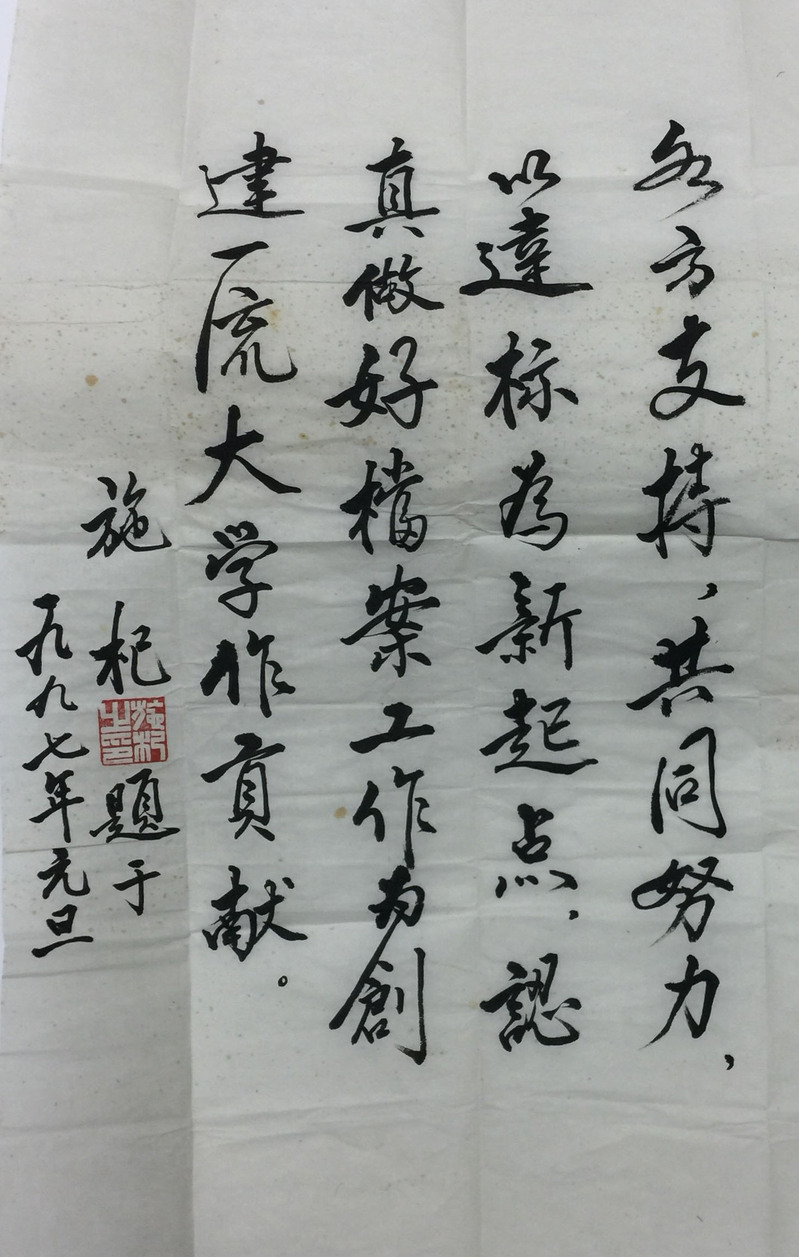 各方支持，共同努力，
以達标為新起点，認
真做好檔案工作为創
建一流大学作貢献。
施杞題于
一九九七年元旦
施杞之印